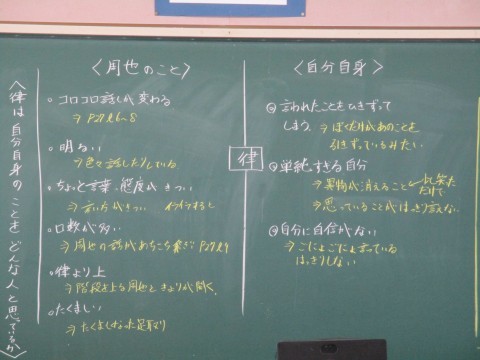 〈律は自分自身のことをどんな人と思っているか〉
〈周也のこと〉
○コロコロ話しが変わる
⇒P27 l6~8
○明るい
⇒色々話したりしている
○ちょっと言葉・態度がきつい
⇒言い方がきつい イライラすると
○口数が多い
⇒周也の話があちこち P27 l9
○律より上
⇒階段を上る周也ときょりが開く。
○たくましい
⇒たくましくなった足取り
律
〈自分自身〉
◎言われたことをひきずって
しまう ⇒ぼくだけがあのことを
引きずっているみたい
◎単純すぎる自分
⇒異物が消えること
笑ただけで
⇒思っていることがはっきり言えない
◎自分に自信がない
⇒ごにょごにょ言っている
はっきりしない